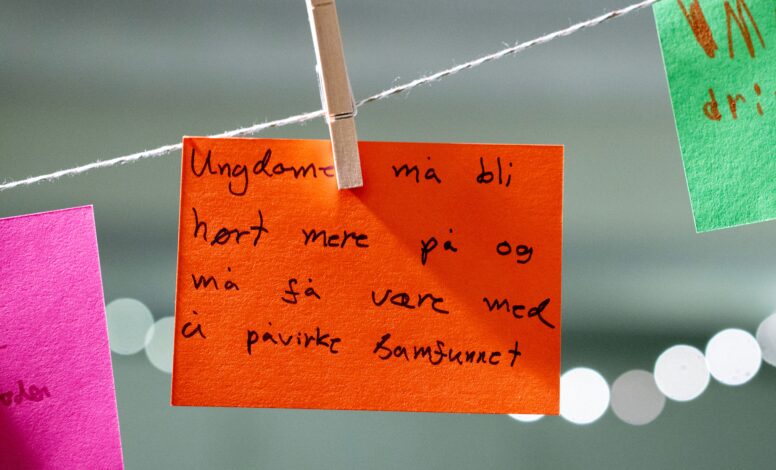 Ungdome må bli
hørt mere på og
må få være med
å påvirke samfunnet
dri